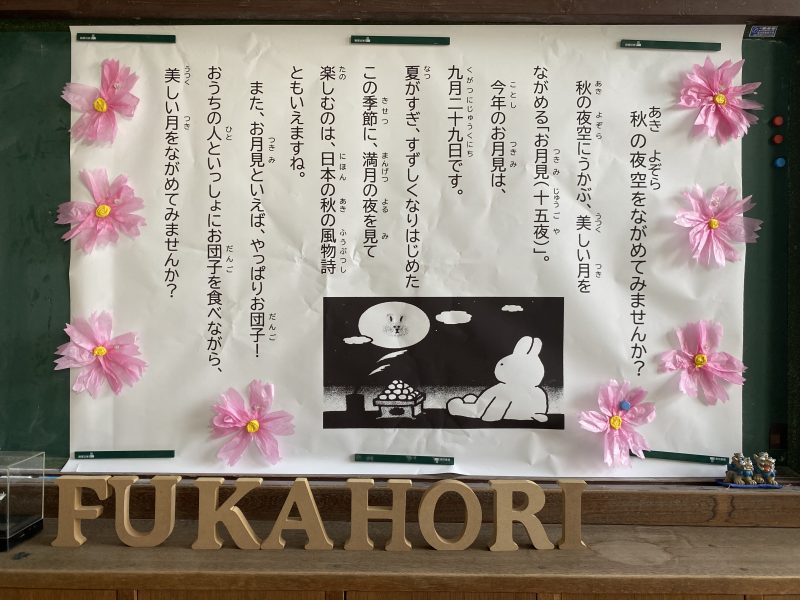 秋の夜空をながめてみませんか?
秋の夜空にうかぶ、美しい月を
ながめる「お月見(十五夜)」。
今年のお月見は、
九月二十九日です。
夏がすぎ、すずしくなりはじめた
この季節に、満月の夜を見て
楽しむのは、日本の秋の風物詩
ともいえますね。
また、お月見といえば、やっぱりお団子!
おうちの人といっしょにお団子を食べながら、
美しい月をながめてみませんか?
FUKAHORI